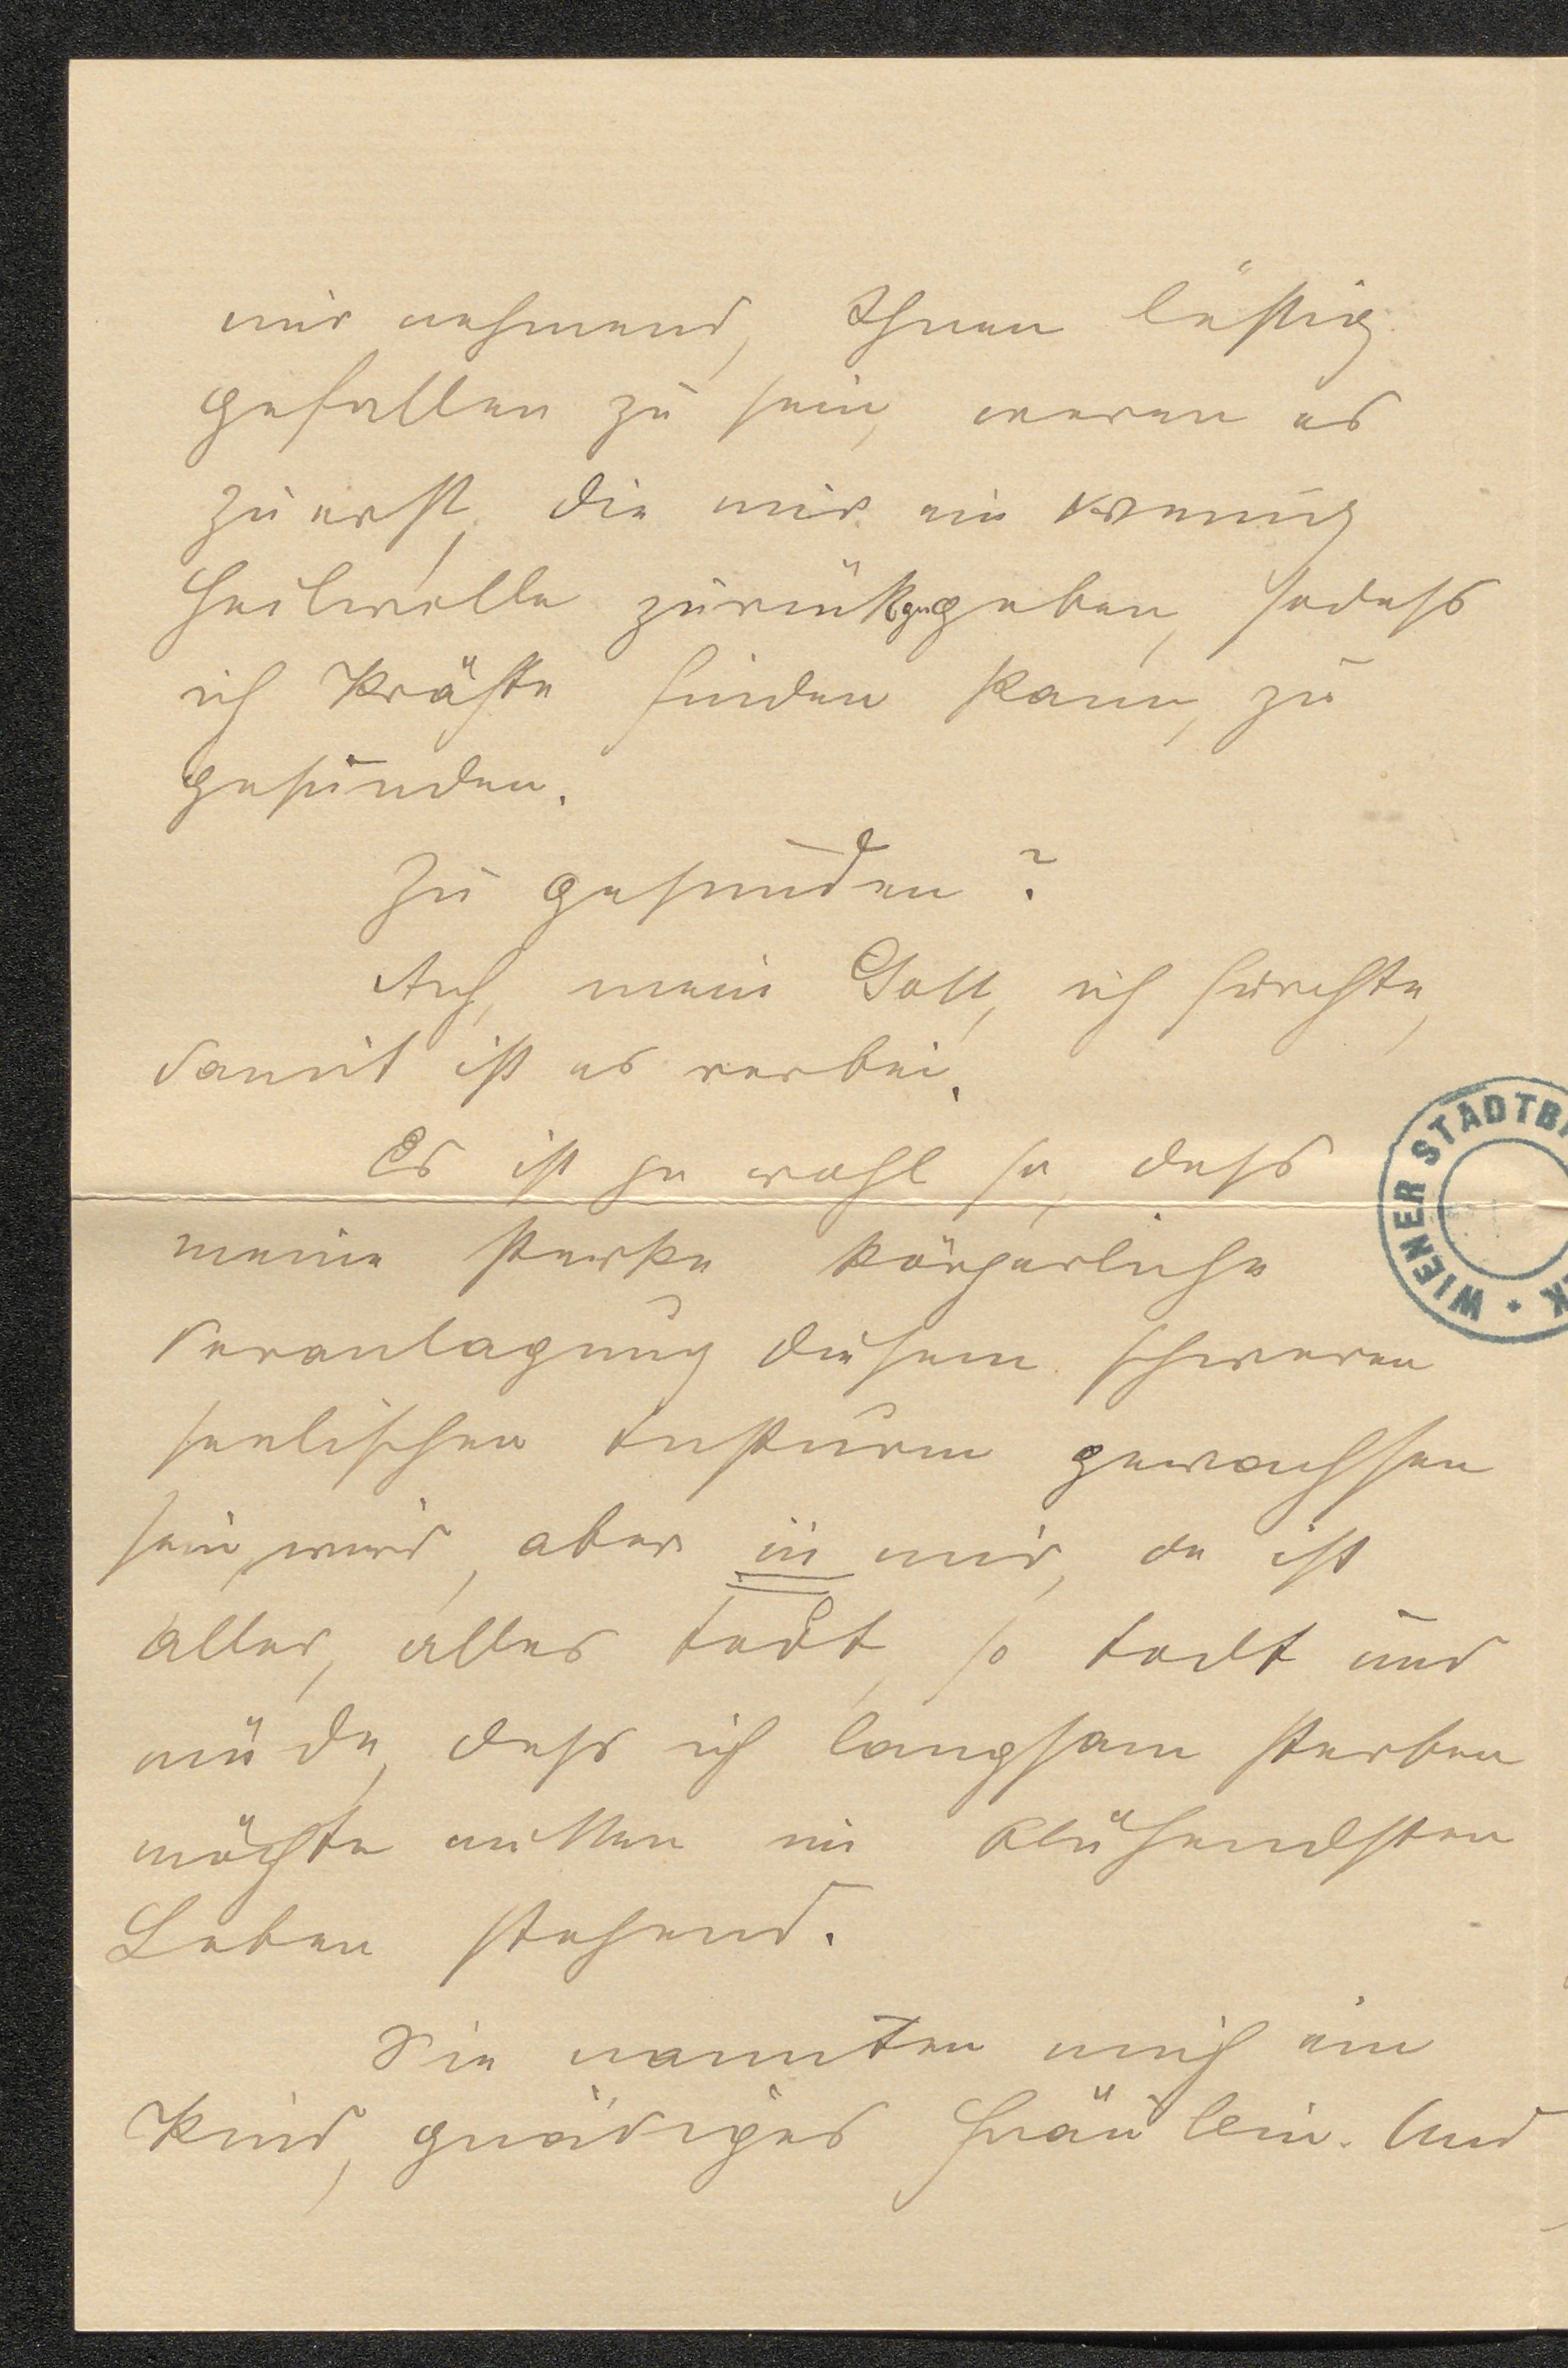 mir nehmend, Ihnen lästig
gefallen zu sein, waren es
zuerst, die mir ein wenig
Heilwolle zurückgegeben, sodass
ich Kräfte finden kann, zu
gesunden.
Zu gesunden?
Ach, mein Gott, ich fürchte,
damit ist es vorbei.
Es ist ja wohl so, dass
meine starke körperliche
Veranlagung diesem schweren
seelischen Ansturm gewachsen
sein wird, aber in mir, da ist
alles, alles todt, so todt und
müde, dass ich langsam sterben
möchte mitten im blühendsten
Leben stehend.
Sie nannten mich ein
Kind, gnädiges Fräulein. Und
WIENER STADTB
K